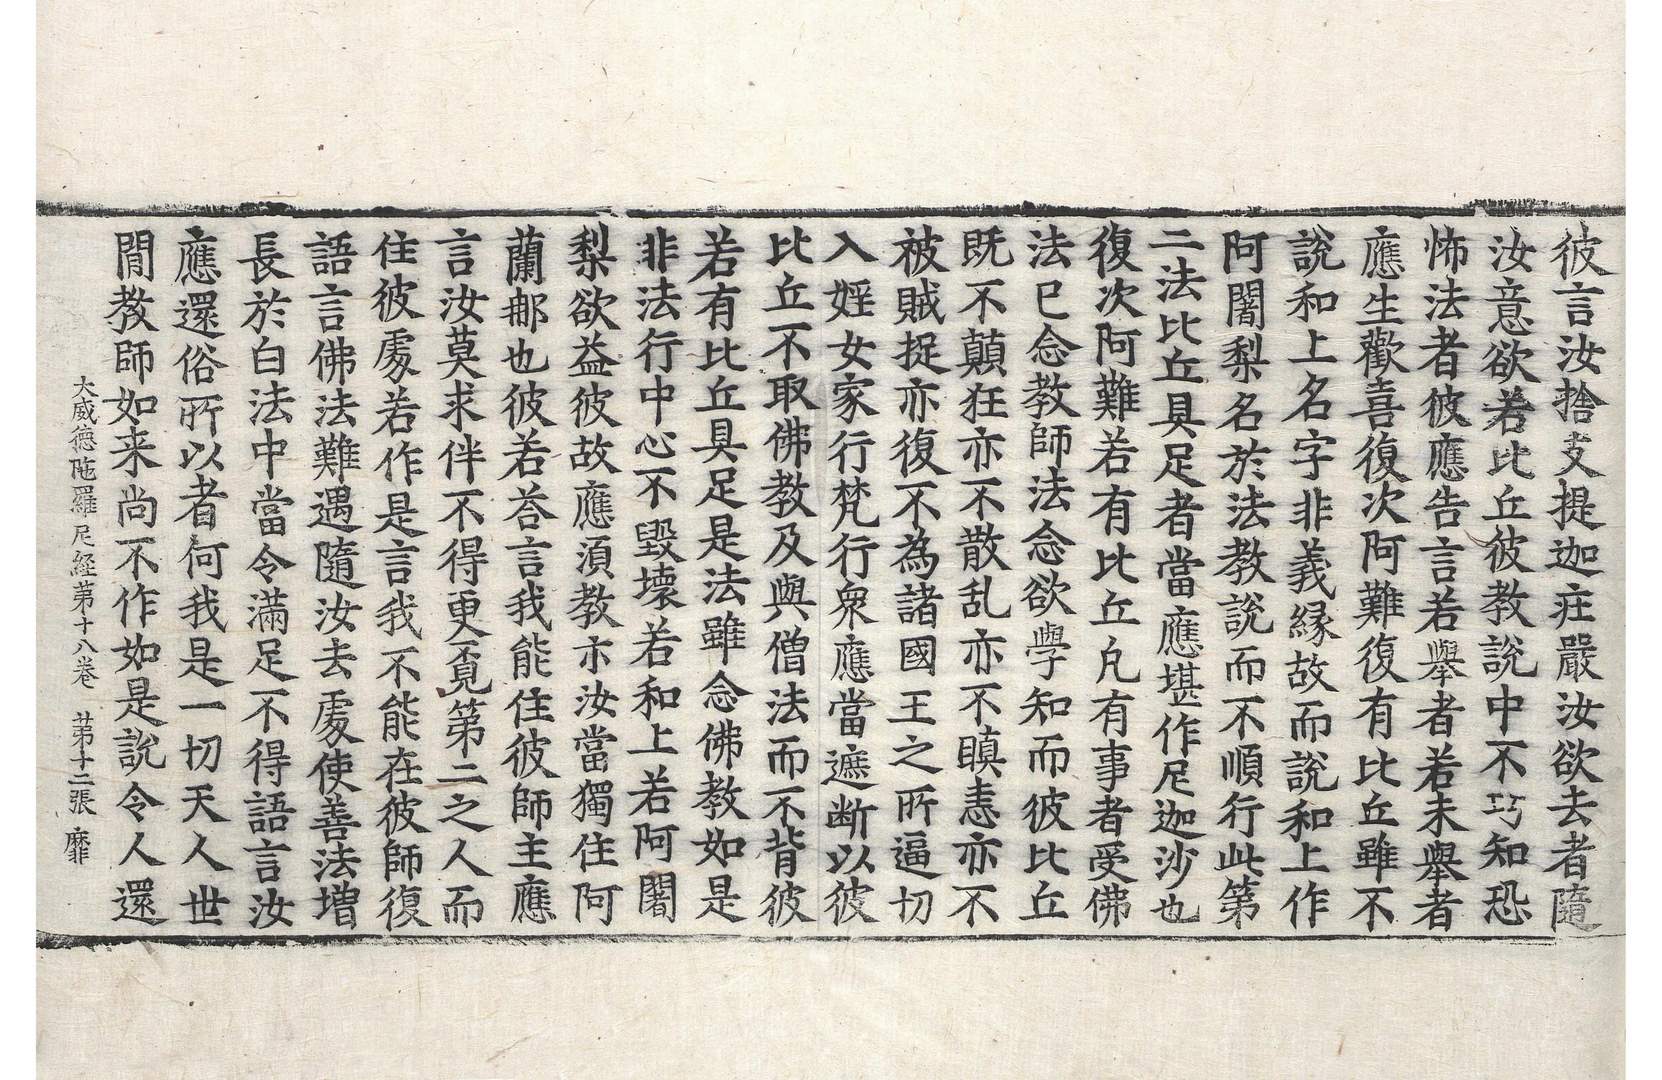 彼言汝捨支提迦莊嚴汝欲去者隨
汝意欲若比丘彼教說中不巧知恐
怖法者彼應告言若舉者若未舉者
應生歡喜復次阿難復有比丘雖不
說和上名字非義緣故而說和上作
阿闍梨名於法教說而不順行此第
二法比丘具足者當應堪作尼迦沙也
復次阿難若有比丘凡有事者受佛
法已念教師法念欲學知而彼比丘
既不顛狂亦不散乱亦不瞋恚亦不
被賊捉亦復不為諸國王之所逼切
入婬女家行梵行衆應當遮断以彼
比丘不取佛教及與僧法而不背彼
若有比丘具足是法雖念佛教如是
非法行中心不毀壞若和上若阿闍
梨欲益彼故應湏教示汝當獨住阿
蘭那也彼若荅言我能住彼師主應
言汝莫求伴不得更覓第二之人而
住彼處若作是言我不能在彼師復
語言佛法難遇隨汝去處使善法增
長於白法中當令滿足不得語言汝
應還俗所以者何我是一切天人世
間教師如来尚不作如是說令人還
大威德陁羅尼經第十八卷 第十二張 靡